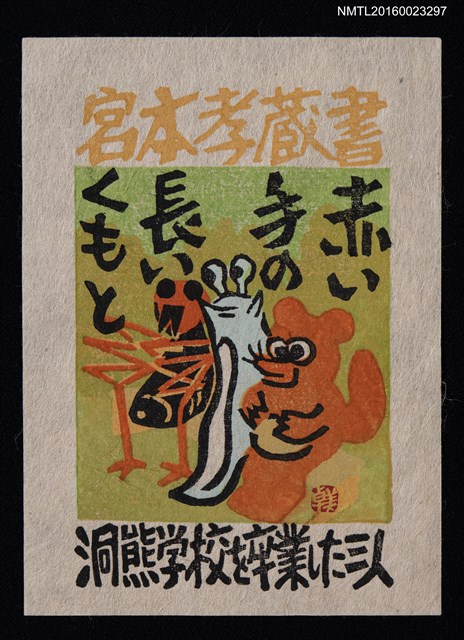 NMTL20160023297
宮本孝蔵書
赤い
手の
長い
くもと
洞熊学校を卒業した三人